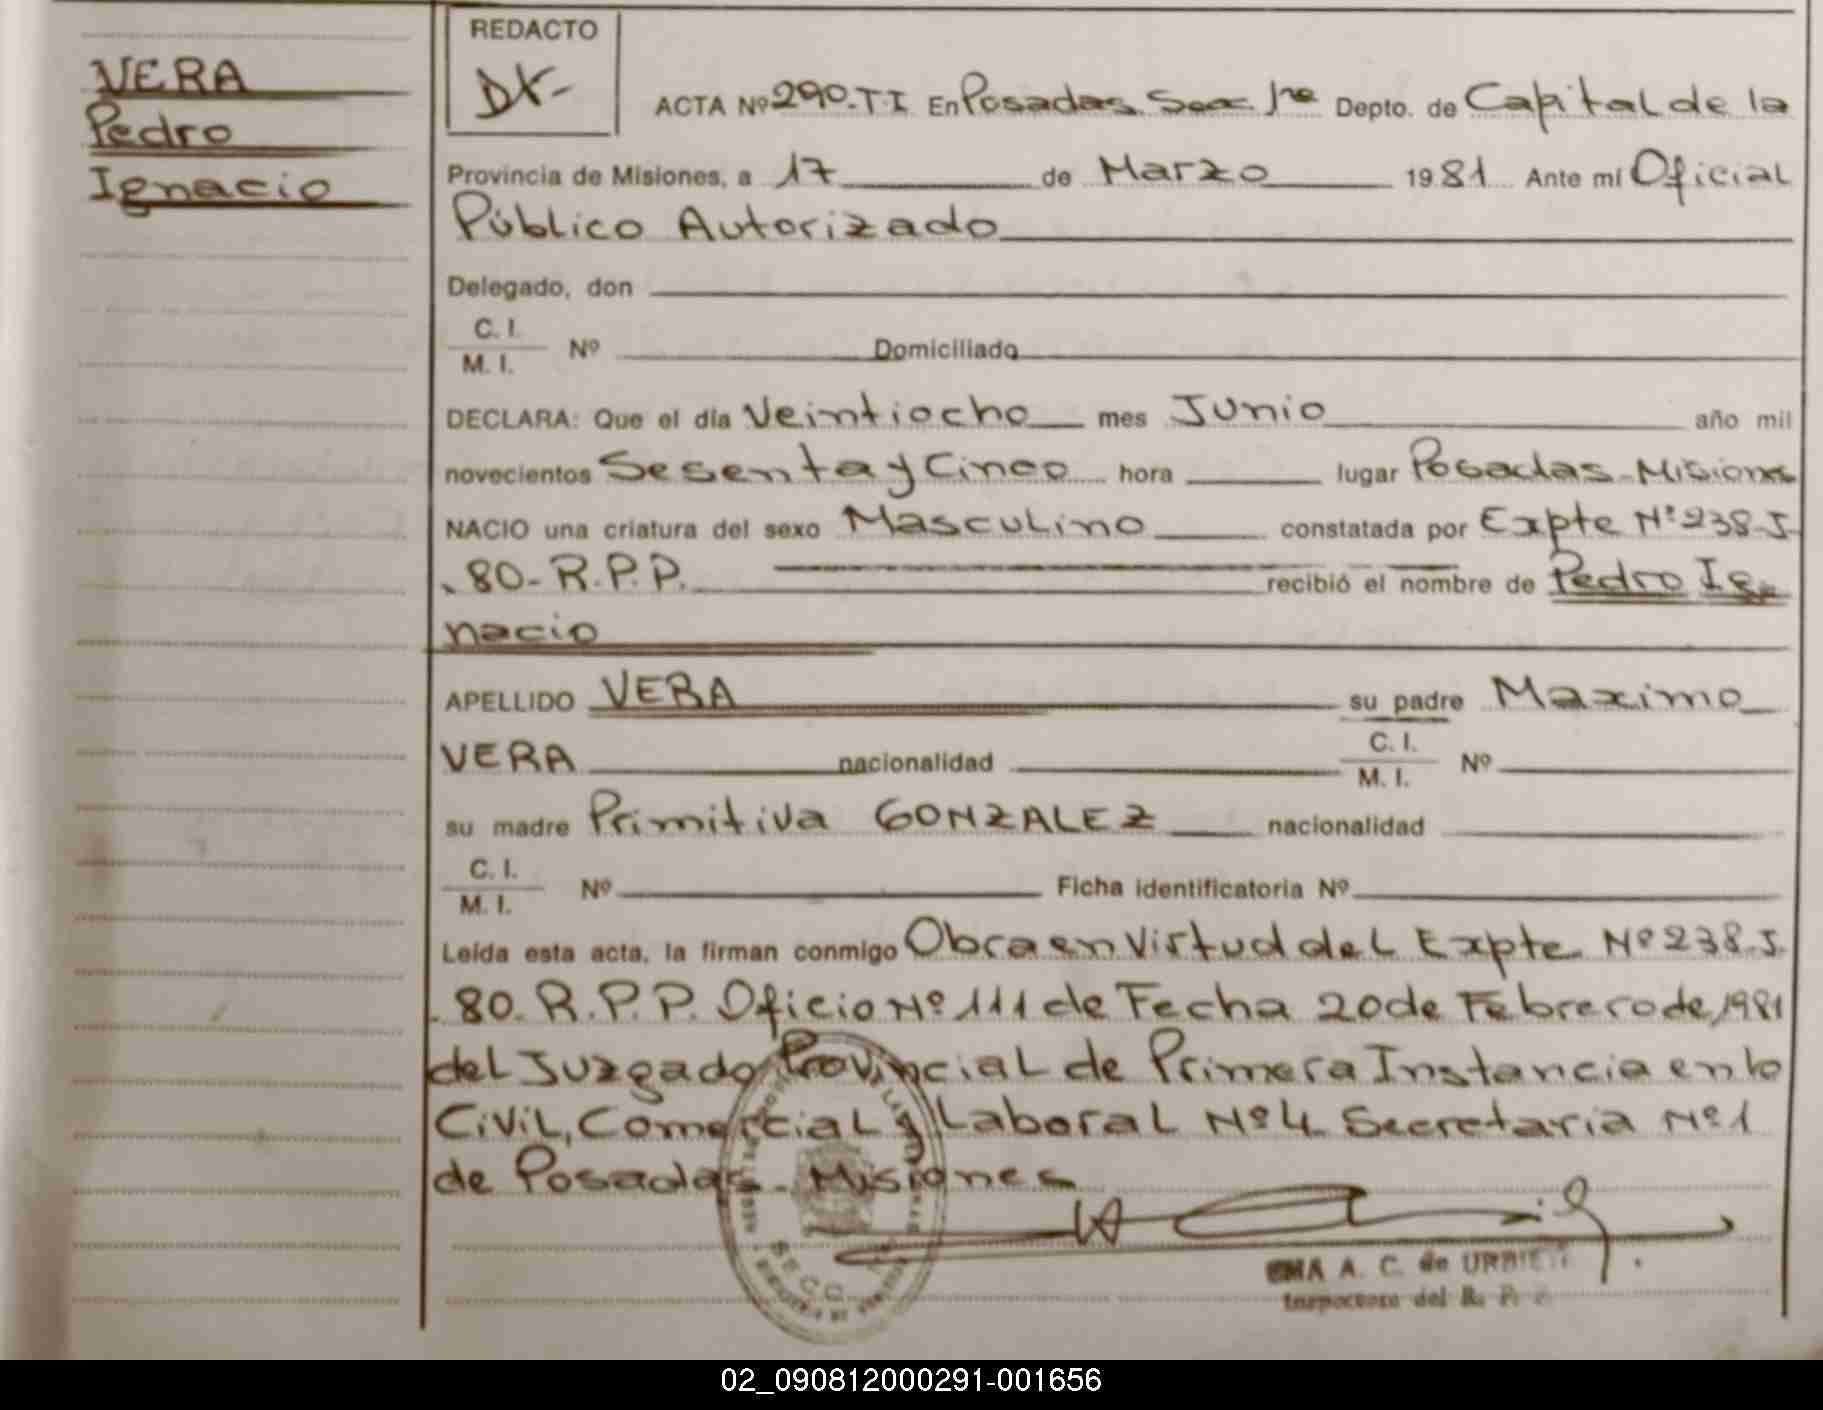 VERA
Pedro
Ignacio
REDACTO
ACTA Nº 290-T.I En Posadas Secc 1ra Depto. de Capital de la
Provincia de Misiones, a 17 de Marzo 1981 Ante mí Oficial
Público Autorizado
Delegado, don
C. I.
M. I. Nº Domiciliado
DECLARA: Que el día Veintiocho mes Junio año mil
novecientos Sesenta y Cinco hora lugar Posadas-Misiones
NACIO una criatura del sexo Masculino constatada por Expte Nº 238-J
-80-R.P.P. recibió el nombre de Pedro Ig-
nacio
APELLIDO VERA su padre Maximo
VERA nacionalidad C. I. M. I. Nº
su madre Primitiva GONZALEZ nacionalidad
C. I.
M. I. Nº Ficha identificatoria Nº
Leída esta acta, la firman conmigo Obra en Virtud del Expte Nº 238-J
-80-R.P.P. Oficio Nº 111 de Fecha 20 de Febrero de 1981
del Juzgado Provincial de Primera Instancia en lo
Civil, Comercial y Laboral Nº 4 Secretaria Nº 1
de Posadas-Misiones
A. C. de
Inspectora del R. P.
02_090812000291-001656